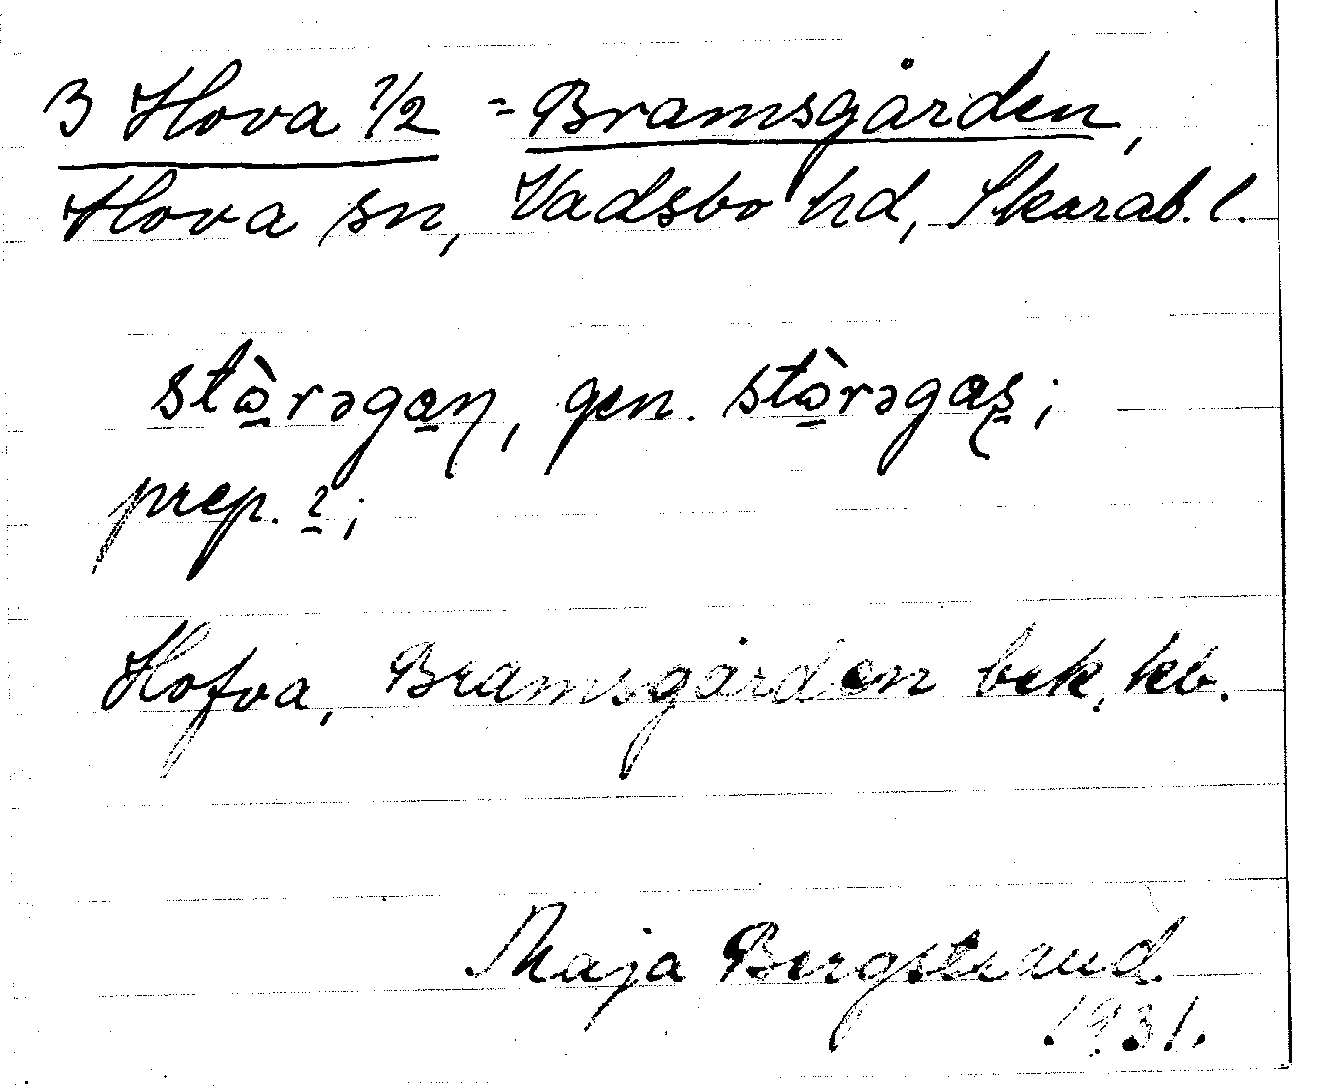 3 Hova 1/2 = Bramsgården,
Hova sn, Vadsbo hd, Skarab. l.
stò̱rəga̱ɳ, gen. stò̱rəgaʂ̱;
prep. ɩ̱;
Hofva, Bramsgården bek, kb.
Maja Bergstrand
1931.